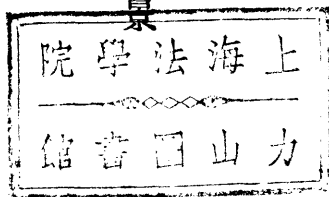 景
上海法學院
力山圖書館